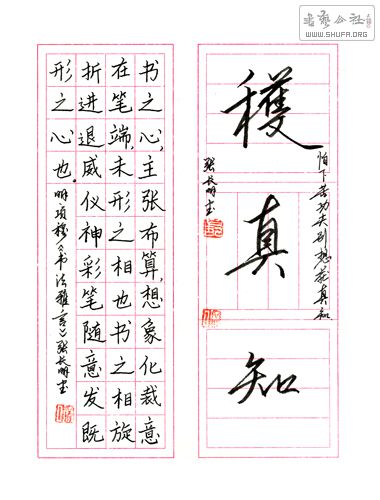 書藝公社
WWW.SHUFA.ORG
怕下苦功夫别想获真知
穫真知
张长明书
书之心,主张布算,想象化裁意
在笔端,未形之相也书之相旋
折进退威仪神彩笔随意发既
形之心也。明项穆《书法雅言》张长明书